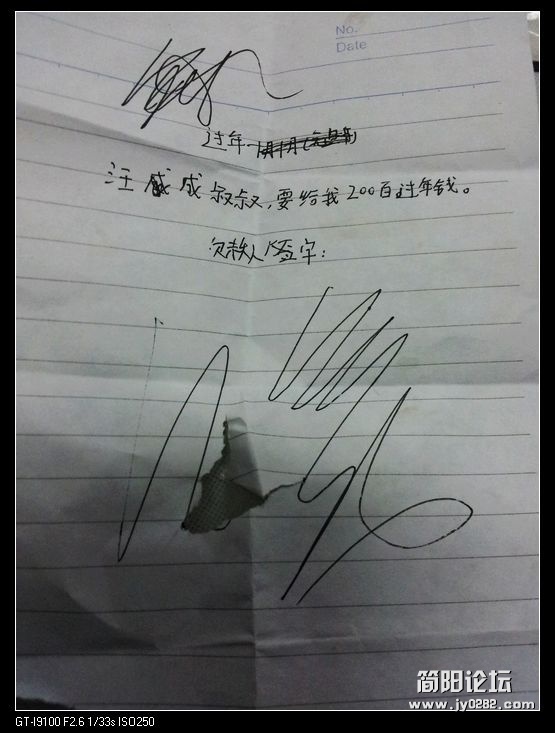 No.
Date
过年
汪威成叔叔,要给我200百过年钱。
欠款人签字:
简阳论坛
www.jy0282.com
GT-I9100 F2.6 1/33s ISO250